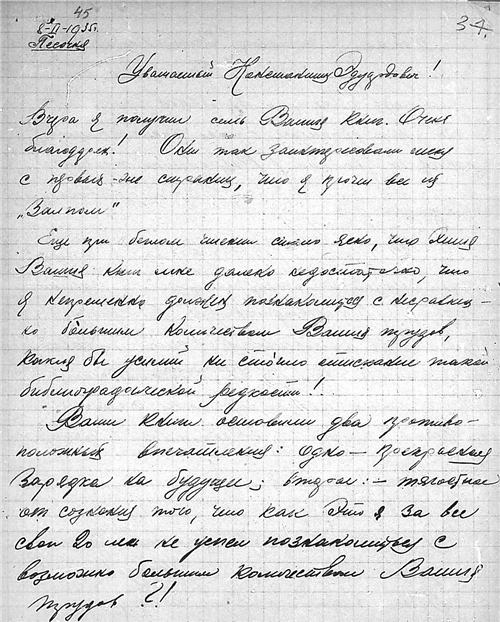 45
34.
8-II-1935г.
Песочня
Уважаемый Константин Эдуардович!
Вчера я получил семь Ваших книг. Очень
благодарен! Они так заинтересовали меня
с первых же страниц, что я прочел все их
„Залпом"
Еще при беглом чтении стало ясно, что этих
Ваших книг мне далеко недостаточно, что
я непременно должен познакомиться с несравнен-
но бо́льшим количеством Ваших трудов,
каких бы усилий ни стоило отыскание такой
библиографической редкости!
Ваши книги оставили два противо-
положных впечатления: одно — прекрасная
зарядка на будущее; второе: — тягостное
от сознания того, что как это я за все
свои 20 лет не успел познакомиться с
возможно большим количеством Ваших
трудов?!